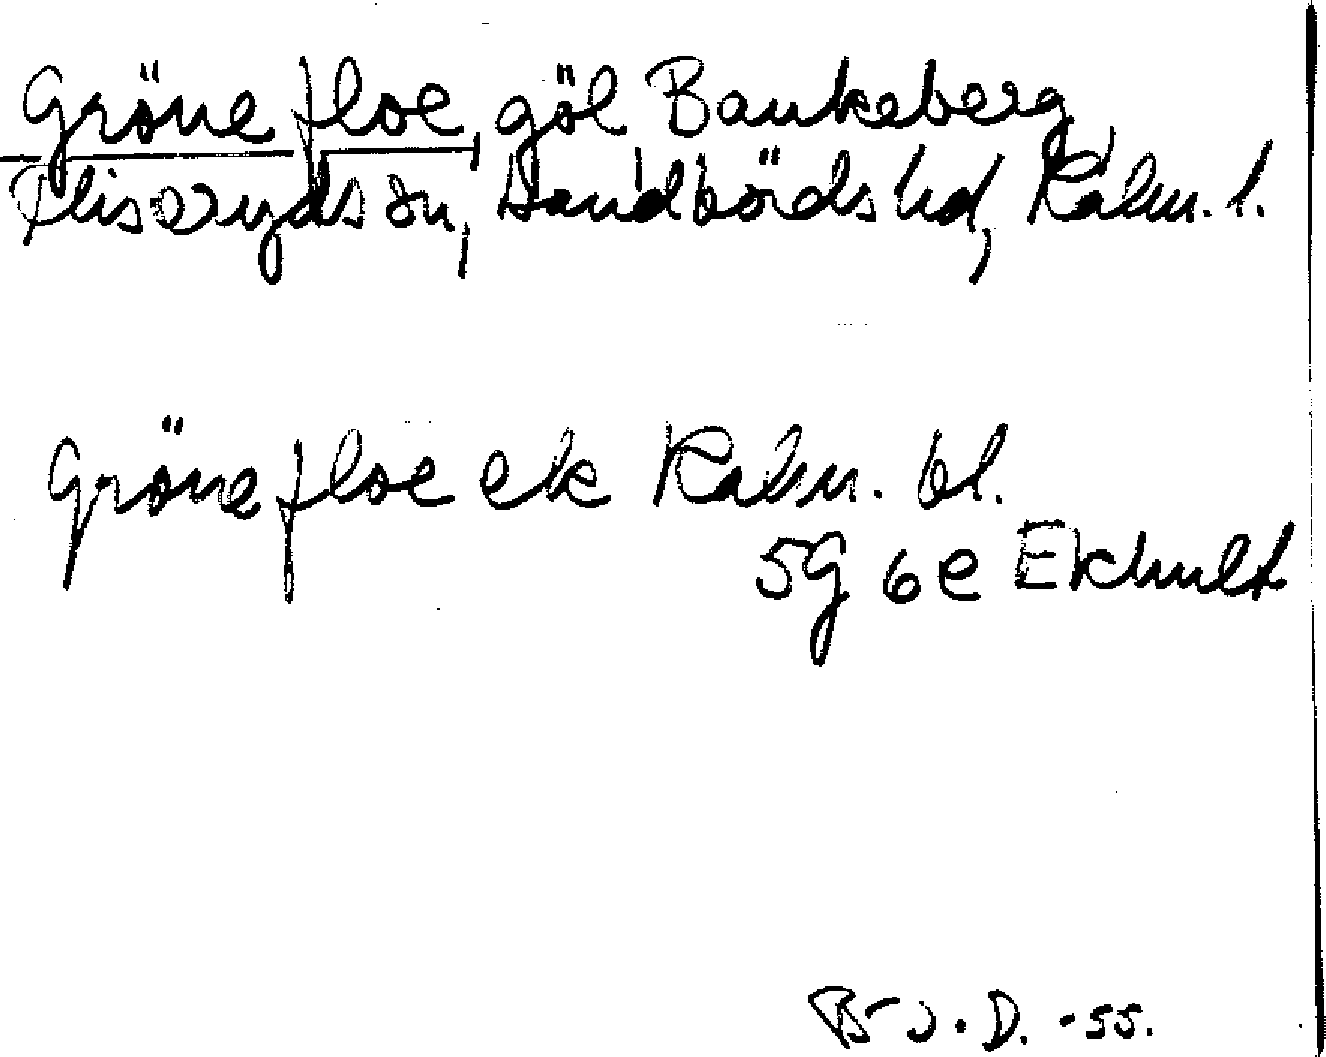 Gröne floe, göl Bankeberg,
Fliseryds sn, Handbörds hd, Kalm. l.
Gröne floe ek Kalm. bl.
5G 6e Ekhult
B-J.D. -55.